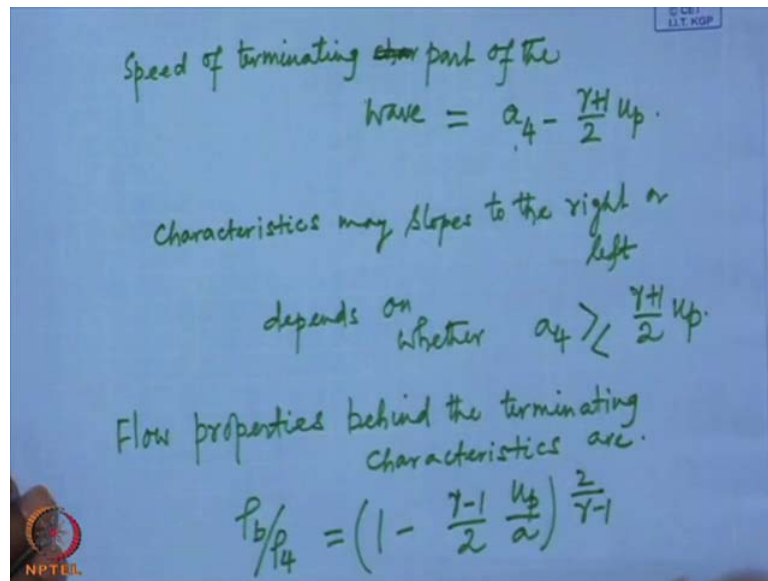 © CET
I.I.T. KGP
Speed of terminating part of the
wave = a₄ - (γ+1)/2 up.
Characteristics may slopes to the right or
left
depends on
whether a₄ ≷ (γ+1)/2 up.
Flow properties behind the terminating
characteristics are.
ρb/ρ4 = (1 - (γ-1)/2 up/a)^(2/(γ-1))
NPTEL